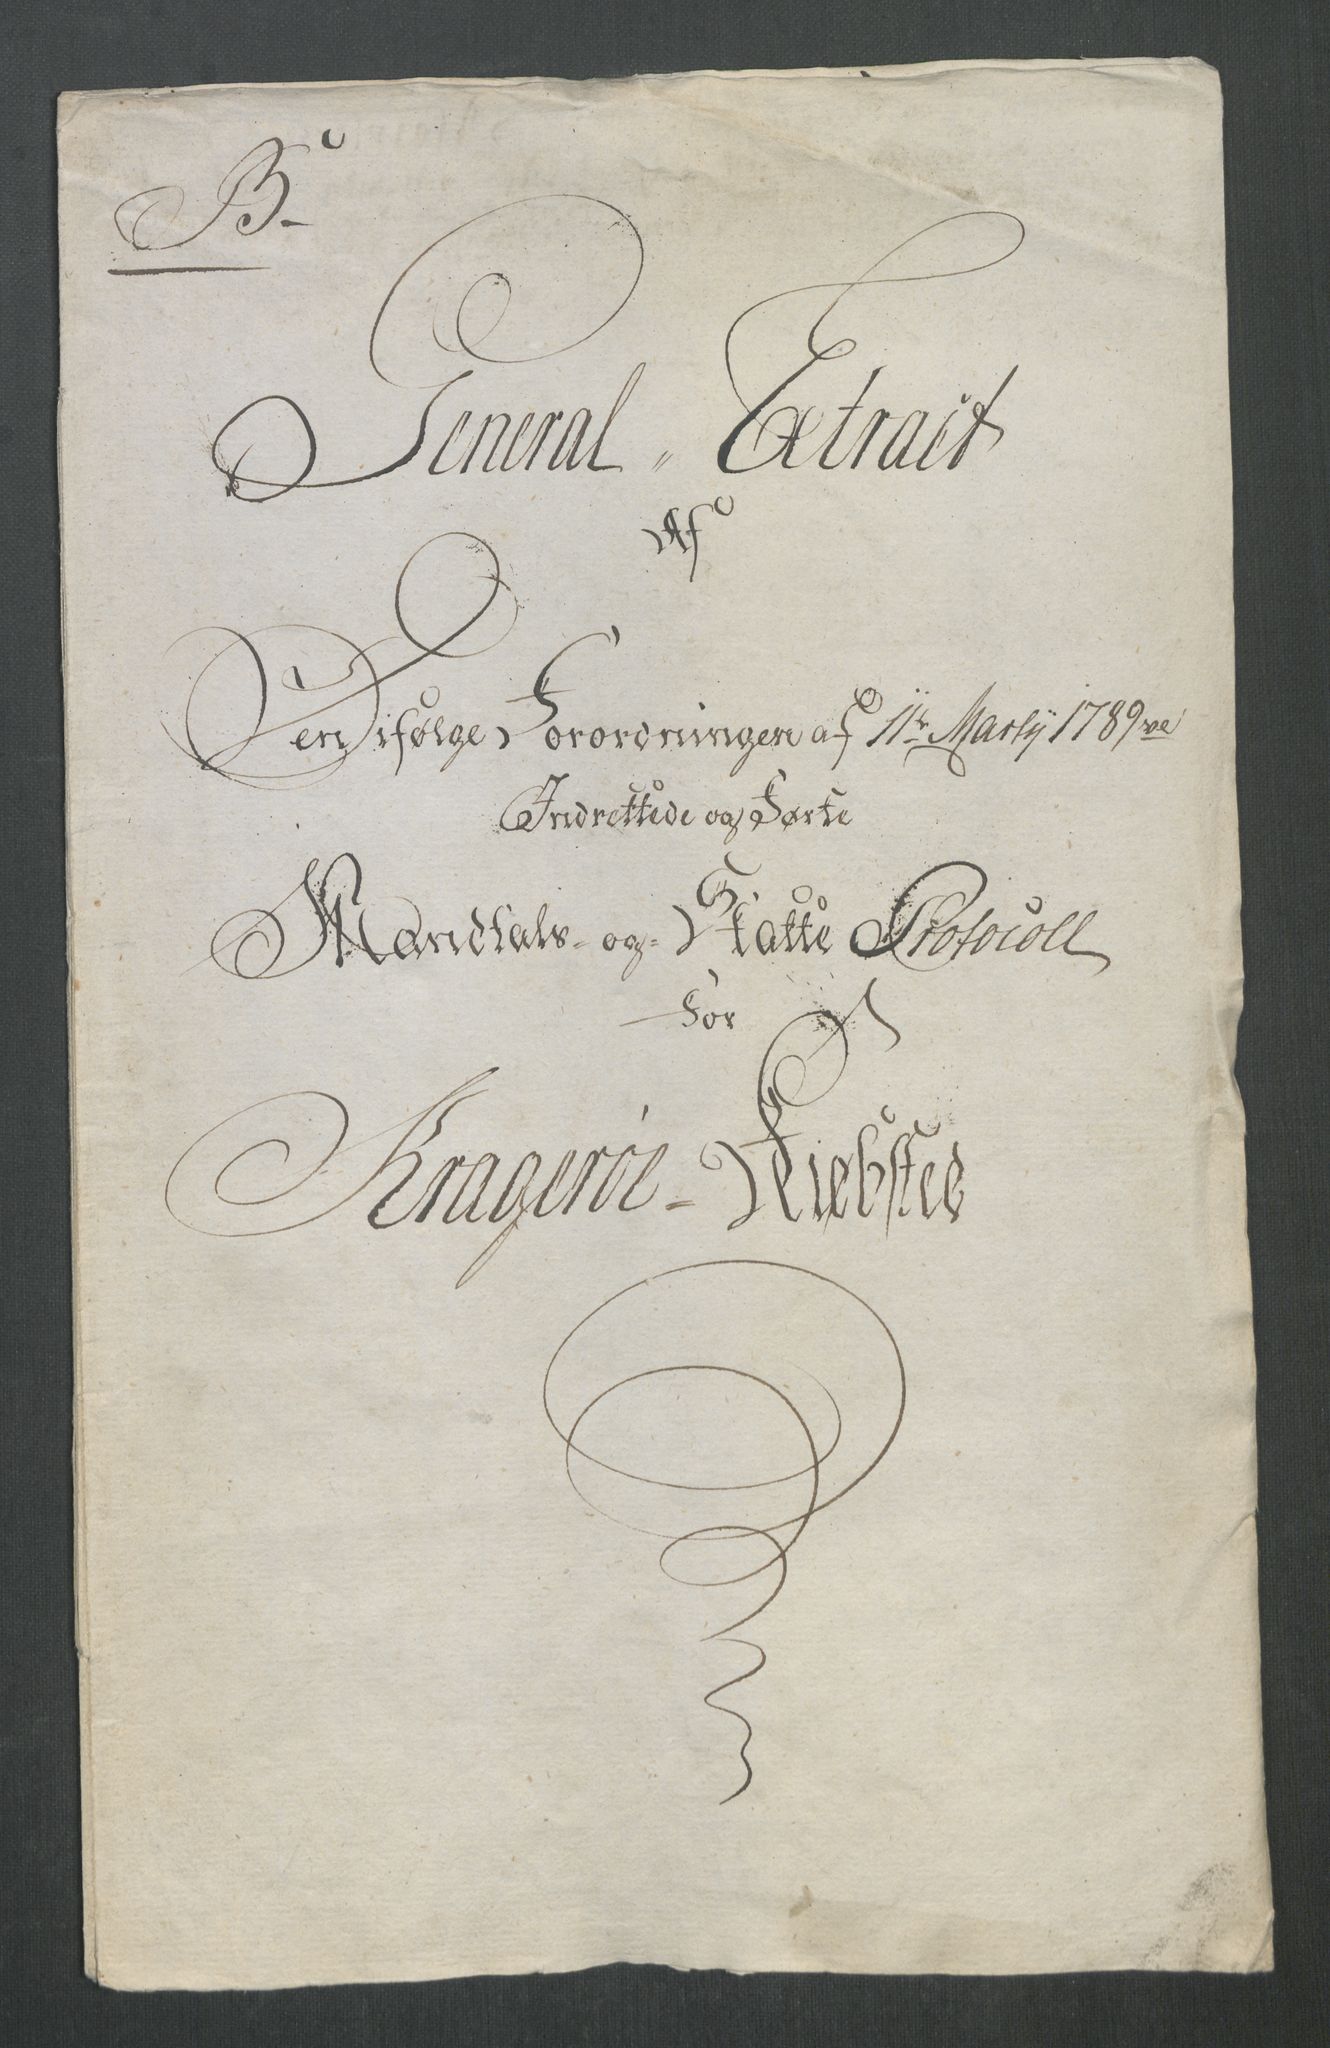 B.
General = Extract
Af
Den ifølge Forordningen af 11te Martÿ 1789ve
Indrettede og Førte
Mandtals- og= Skatte Protocoll
For
Krageröe = Kiøbsted